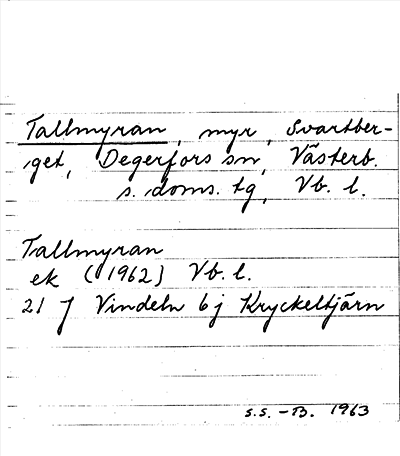 Tallmyran, myr, Svartber-
get, Degerfors sn, Västerb.
s. doms. tg, Vb. l.
Tallmyran
ek (1962) Vb. l.
21 J Vindeln 6j Kryckeltjärn
S.S. - B. 1963